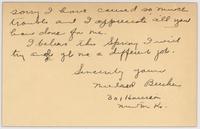 sorry I have caused so much
trouble and I appreciate all you
have done for me.
I believe this Spring I will
try and get me a different job.
Sincerely yours
Becker
301 Harrison
Newton Ks.